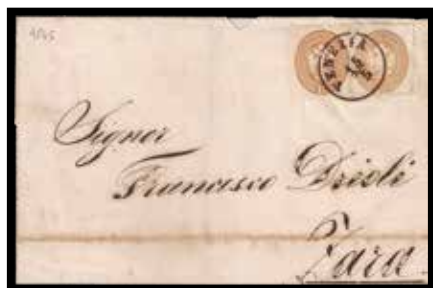 VENEZIA
Signor
Francisco Drioli
Zara